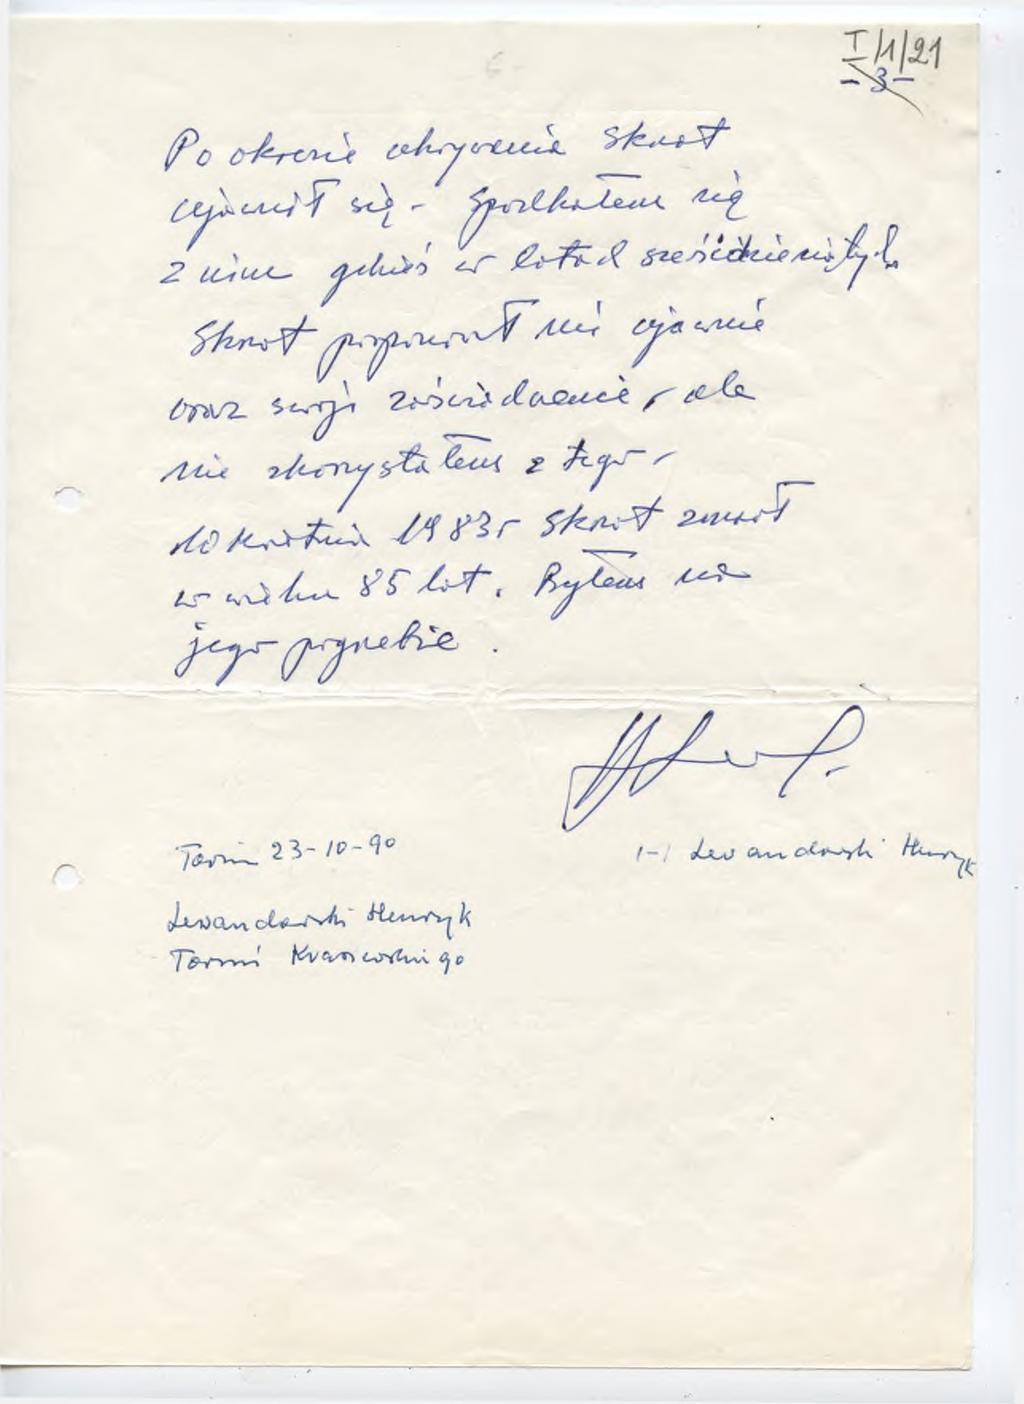 I/1/21
- 3 -
Po okresie ukrywania Skrot
ujawnił się - Spotkałem się
z nim gdzieś w latach sześćdziesiątych.
Skrot proponował mi ujawnie
oraz swoje zaświadczenie, ale
nie skorzystałem z tego -
10 kwietnia 1983r Skrot zmarł
w wieku 85 lat. Byłem na
jego pogrzebie.
Toruń 23-10-90
/-/ Lewandowski Henryk
Lewandowski Henryk
Toruń